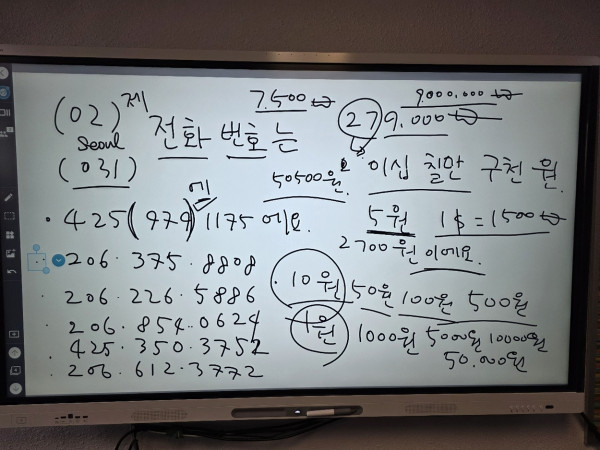 (02) 제 전화 번호는
Seoul
(031)
7.500원
9.000.000원
279.000원
이십 칠만 구천 원.
50500원
에
425(979)1175 에요.
5원 1$ = 1500원
2700원 이에요.
206.375.8808
206.226.5886
206.854.0624
425.350.3752
206.612.3772
10원 50원 100원 500원
1원 1000원 5000원 10000원
50.000원